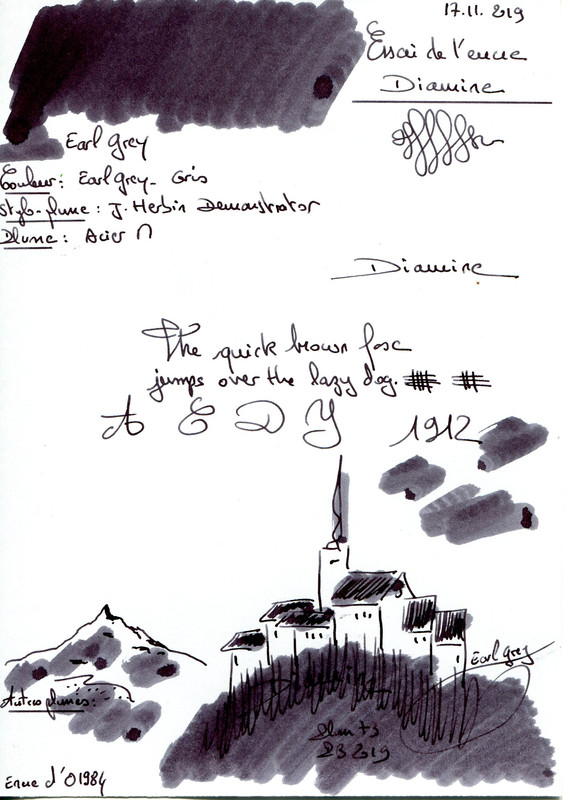 17.11.2019
Essai de l'encre
Diamine
Earl Grey
Couleur: Earl Grey - Gris
Stylo-plume: J. Herbin Demonstrator
Plume: Acier M
Diamine
The quick brown fox
jumps over the lazy dog.
A E D Y 1912
Earl Grey
Diamine
Autres plumes:
2019
Encre d'O1984